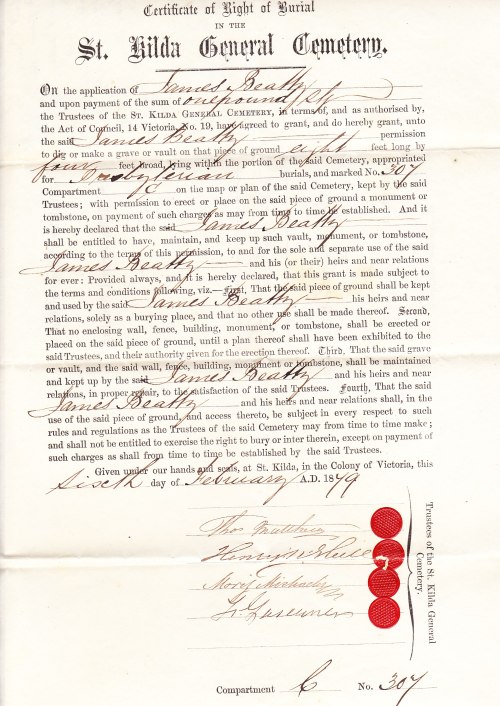 Certificate of Right of Burial
IN THE
St. Kilda General Cemetery.
On the application of James Beatty
and upon payment of the sum of one pound
the Trustees of the St. Kilda General Cemetery, in terms of, and as authorised by,
the Act of Council, 14 Victoria, No. 19, have agreed to grant, and do hereby grant, unto
the said James Beatty permission
to dig or make a grave or vault on that piece of ground eight feet long by
four feet broad, lying within the portion of the said Cemetery, appropriated
for Presbyterian burials, and marked No. 307
Compartment C on the map or plan of the said Cemetery, kept by the said
Trustees; with permission to erect or place on the said piece of ground a monument or
tombstone, on payment of such charges as may from time to time be established. And it
is hereby declared that the said James Beatty
shall be entitled to have, maintain, and keep up such vault, monument, or tombstone,
according to the terms of this permission, to and for the sole and separate use of the said
James Beatty and his (or their) heirs and near relations
for ever: Provided always, and it is hereby declared, that this grant is made subject to
the terms and conditions following, viz.—First, That the said piece of ground shall be kept
and used by the said James Beatty his heirs and near
relations, solely as a burying place, and that no other use shall be made thereof. Second,
That no enclosing wall, fence, building, monument, or tombstone, shall be erected or
placed on the said piece of ground, until a plan thereof shall have been exhibited to the
said Trustees, and their authority given for the erection thereof. Third, That the said grave
or vault, and the said wall, fence, building, monument or tombstone, shall be maintained
and kept up by the said James Beatty and his heirs and near
relations, in proper repair, to the satisfaction of the said Trustees. Fourth, That the said
James Beatty and his heirs and near relations shall, in the
use of the said piece of ground, and access thereto, be subject in every respect to such
rules and regulations as the Trustees of the said Cemetery may from time to time make;
and shall not be entitled to exercise the right to bury or inter therein, except on payment of
such charges as shall from time to time be established by the said Trustees.
Given under our hands and seals, at St. Kilda, in the Colony of Victoria, this
Sixth day of February A.D. 1879
Thos
Henry
Moritz Michaelis
Trustees of the St. Kilda General
Cemetery.
Compartment C No. 307